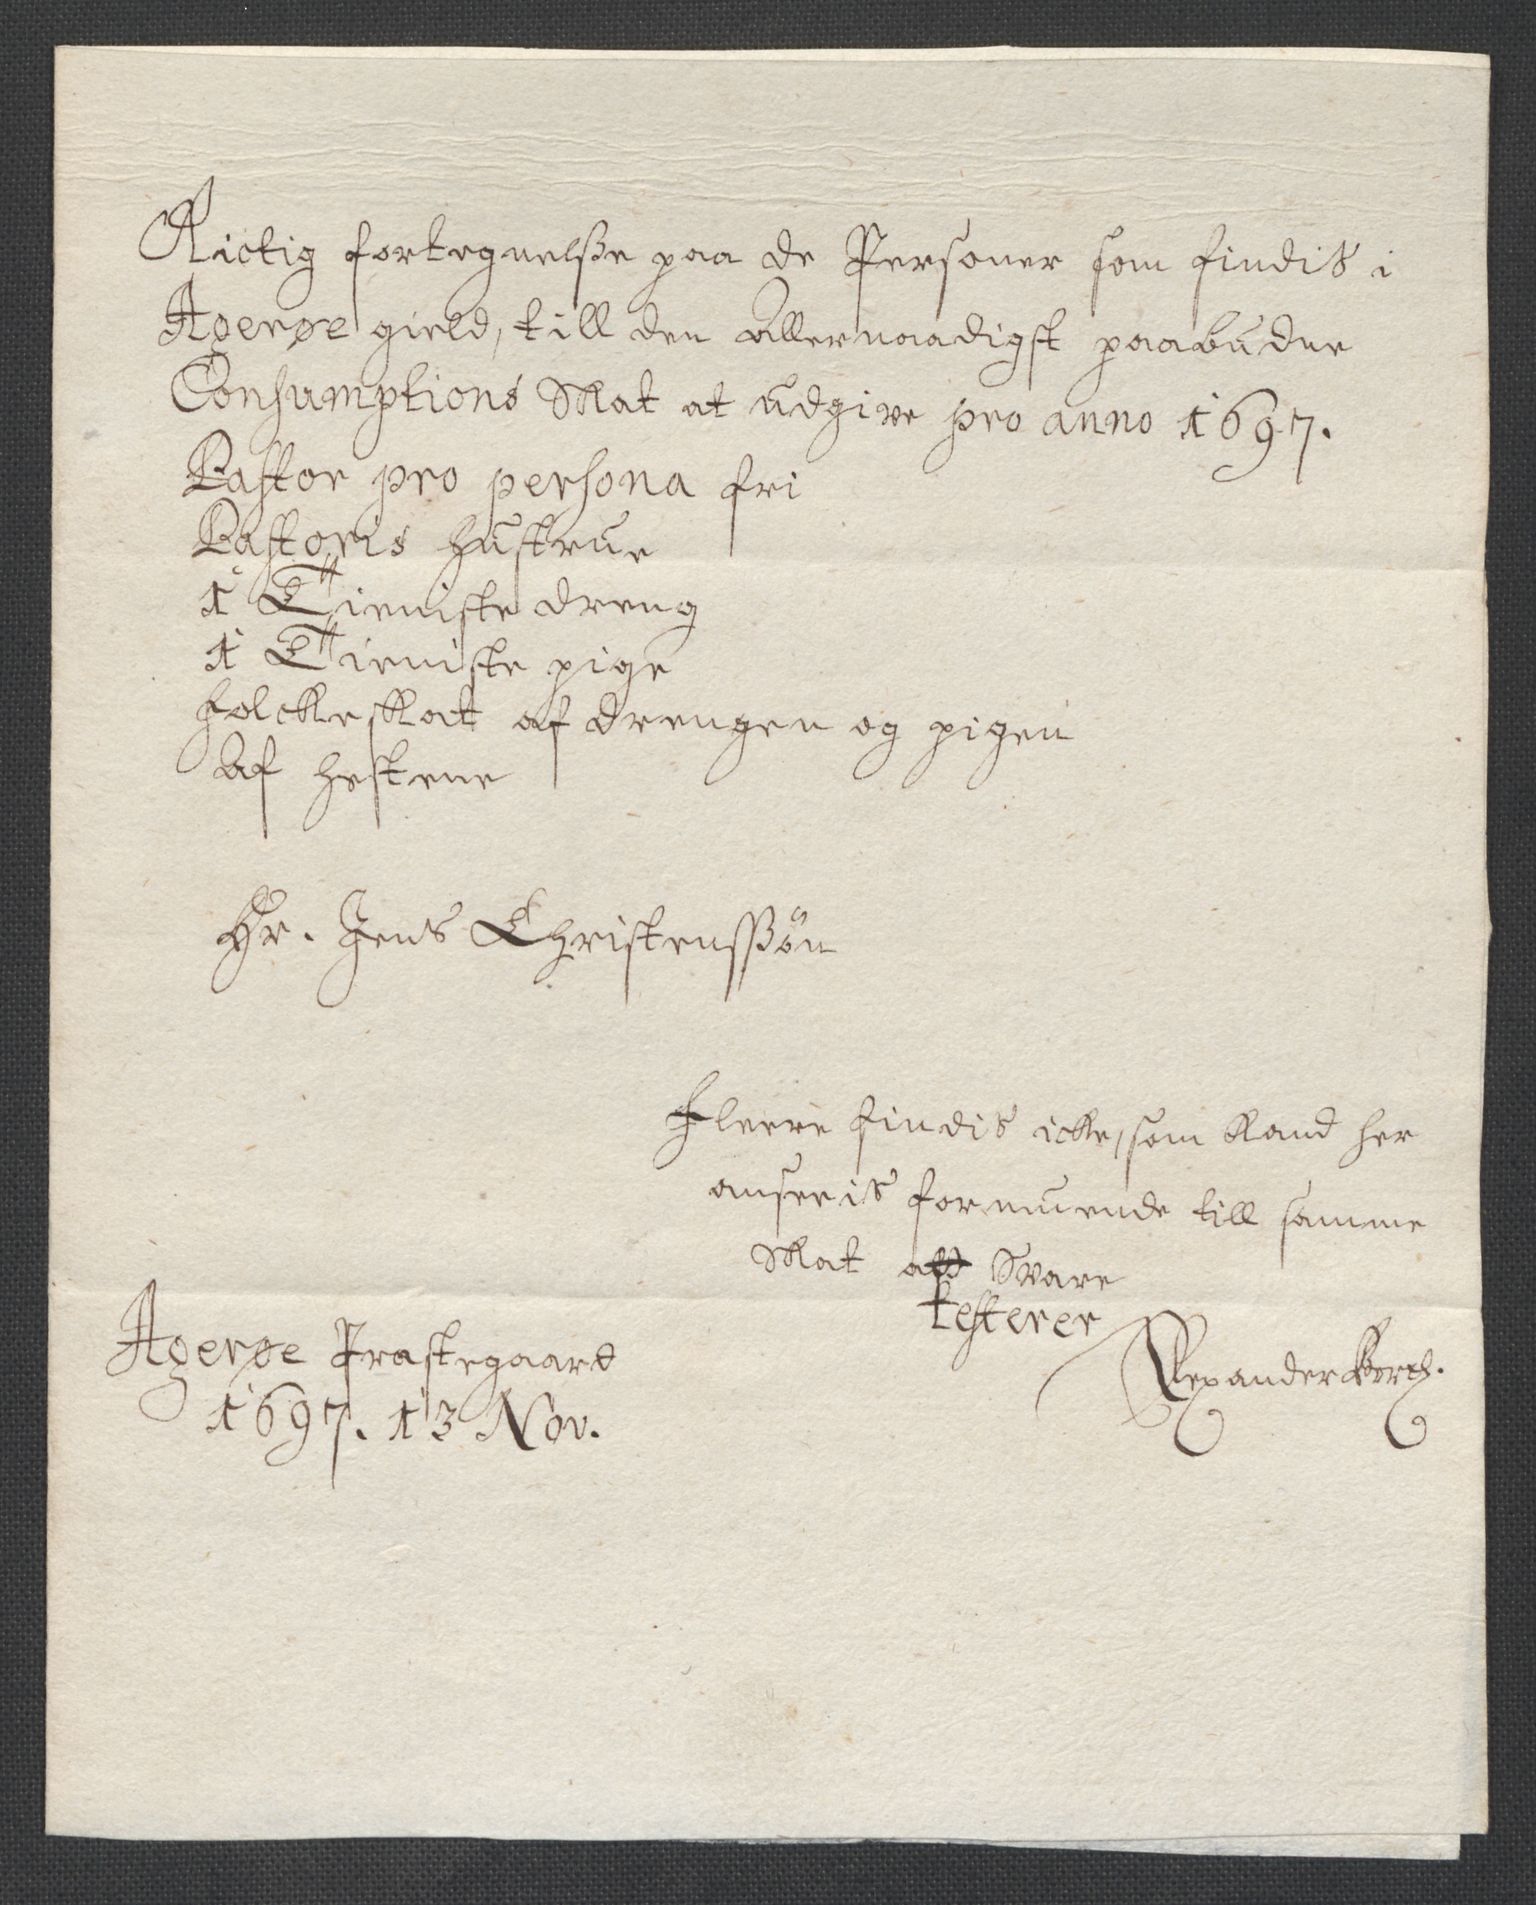 Rictig fortegnelsze paa de Personer som findis i
Agerøe gield, till den Allernaadigst paabudne
Consumptions Skat at udgive pro anno 1697.
Pastor pro persona fri
Pastoris hustrue
1 Tieniste dreng
1 Tieniste pige
folckeskat af drengen og pigen
Af hestene
Hr. Jens Christenssøn
Fleere findis icke, som kand her
anseeis formuende till samme
Skat att Svare
testerer
Agerøe Præstegaard
Alexander
1697. 13 Nov.